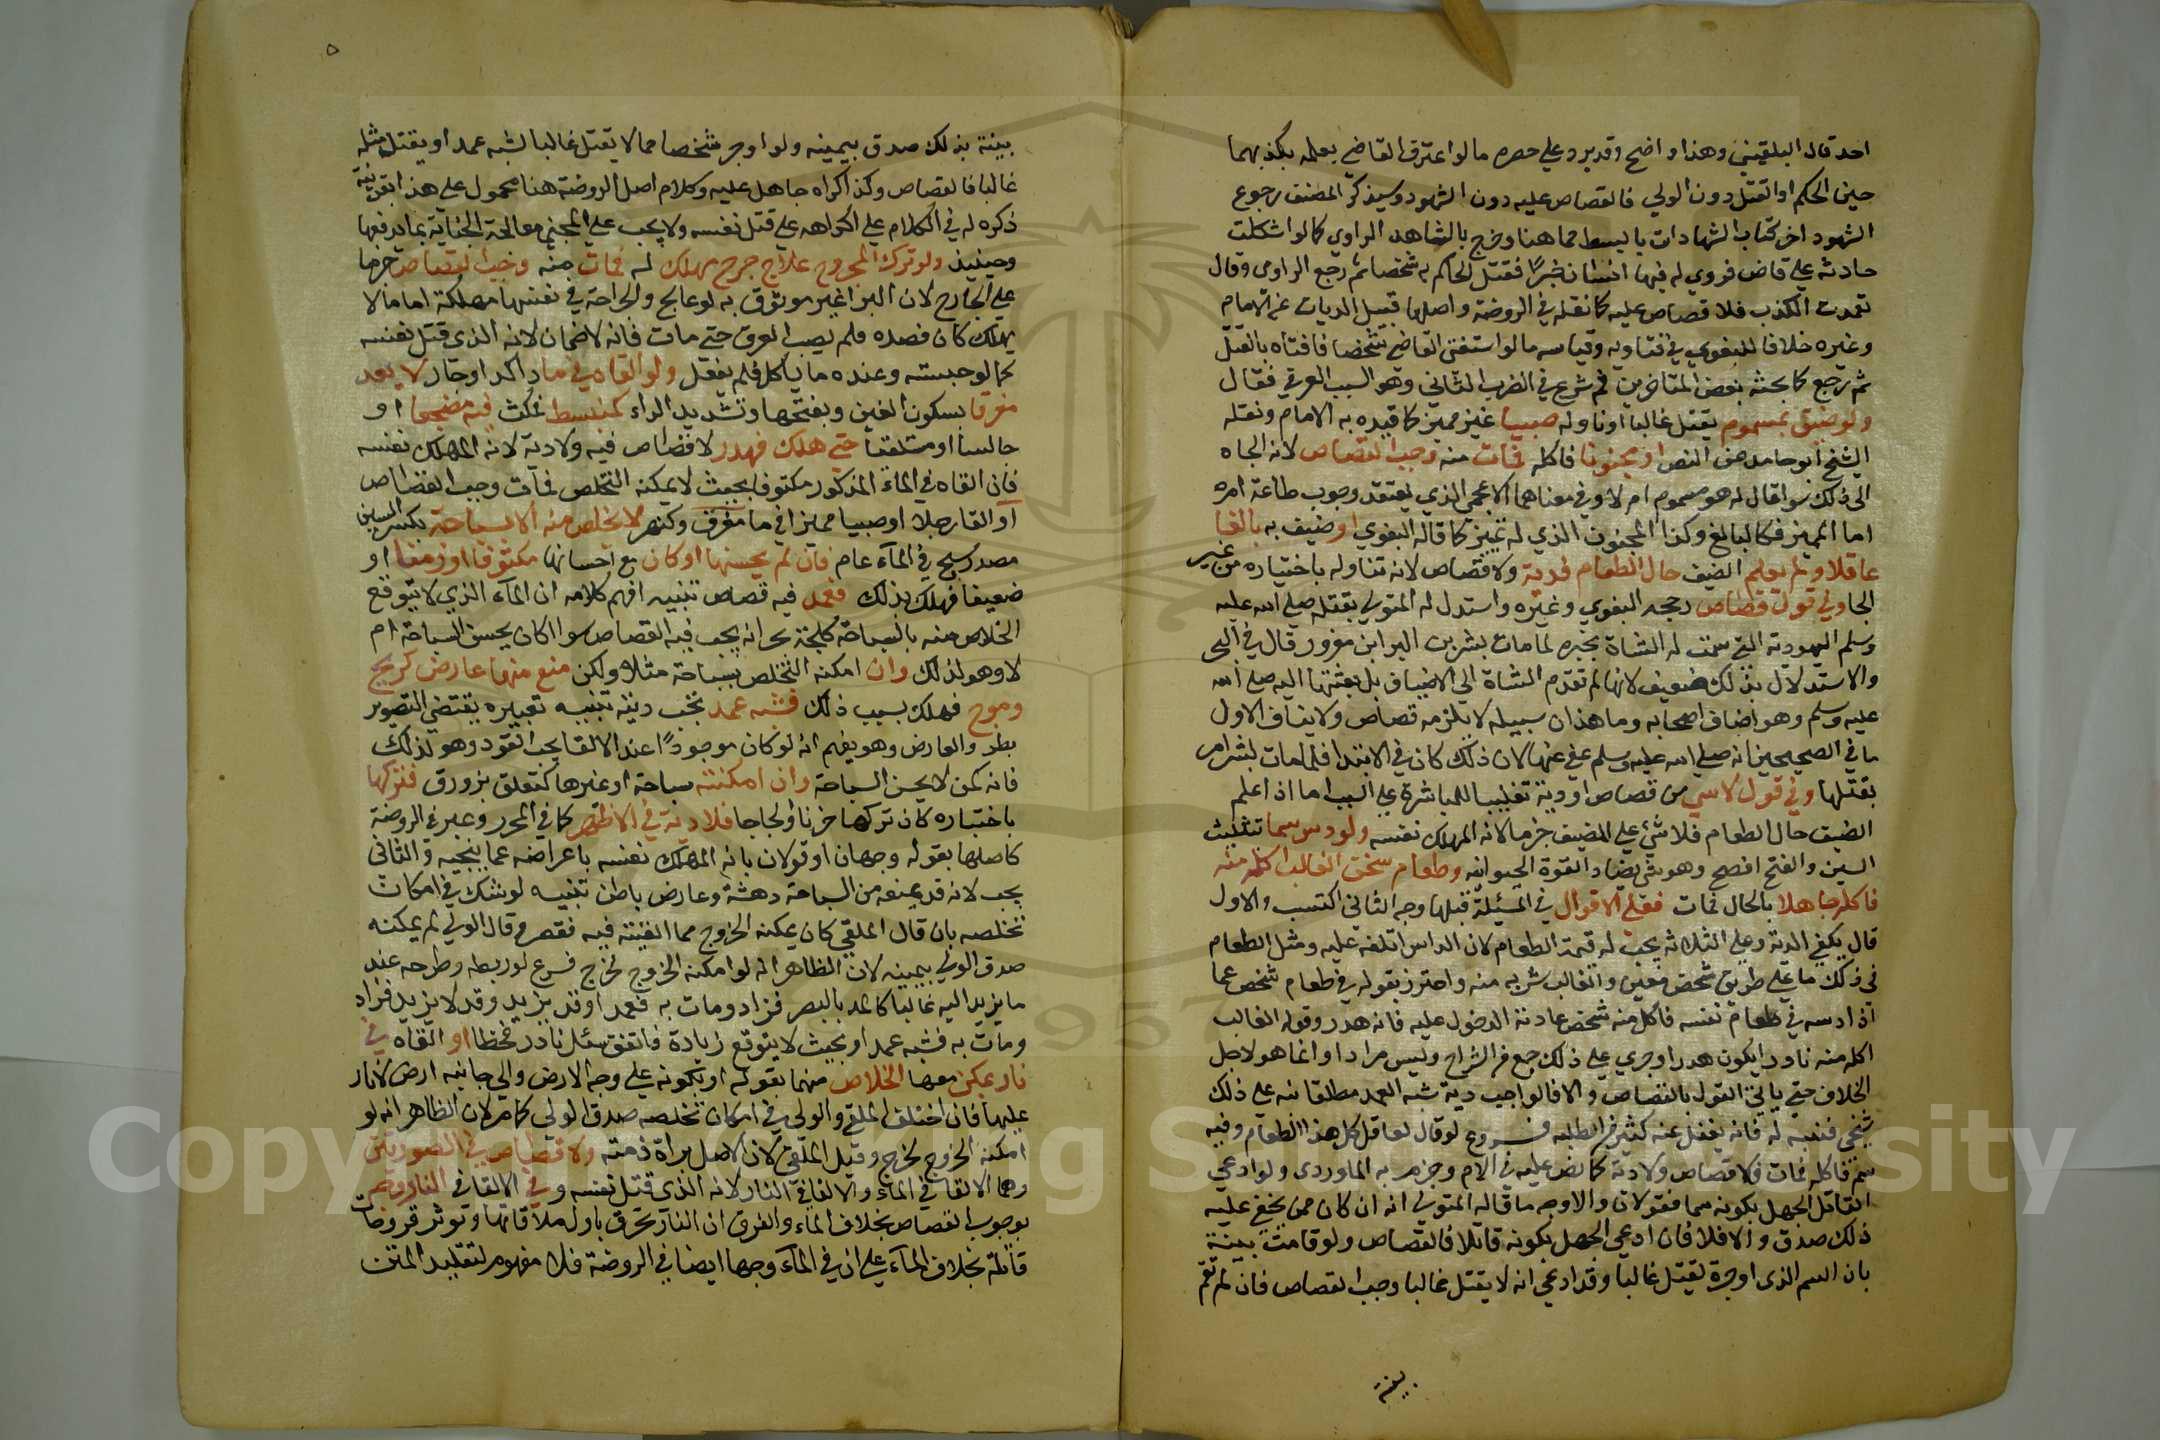 احد قال البلقيني وهذا واضح وقد يرد على حصره ما لو اعترف القاضي بعلمه بكذبهما
حين الحكم او القتل دون الولي فالقصاص عليه دون الشهود وسيذكر المصنف رجوع
الشهود اخر كتاب الشهادات بابسط مما هنا وخرج بالشاهد الراوي كما لو اشكلت
حادثة على قاض فروي له فيها انسان خبرًا فقتل الحاكم به شخصا ثم رجع الراوي وقال
تعمدت الكذب فلا قصاص عليه كما نقله في الروضة واصلها قبيل الديات عن الامام
وغيره خلافا للبغوي في فتاويه وقياسه ما لو استفتى القاضي شخصا فافتاه بالقتل
ثم رجع كما بحثه بعض المتاخرين ثم شرع في الضرب الثاني وهو السبب العرفي فقال
ولو ضيف بمسموم يقتل غالبا او ناوله صبيا غير مميز كما قيده به الامام ونقله
الشيخ ابو حامد عن النص او مجنونا فاكله فمات منه وجب القصاص لانه الجاه
الى ذلك سوا قال له هو مسموم ام لا وفي معناهما الاعجمي الذي يعتقد وجوب طاعة امره
اما المميز فكالبالغ وكذا المجنون الذي له تمييز كما قاله البغوي او ضيف به بالغا
عاقلا ولم يعلم الضيف حال الطعام فدية ولا قصاص لانه تناوله باختياره من غير
الجا وفي قول قصاص رجحه البغوي وغيره واستدل له المتولي بقتله صلى الله عليه
وسلم اليهودية التي سمت له الشاة بخيبر لما مات بشر بن البرا بن معرور قال في البحر
والاستدلال بذلك ضعيف لانها لم تقدم الشاة الى الاضياف بل بعثتها اليه صلى الله
عليه وسلم وهو اضاف اصحابه وما هذا سبيله لا يلزمه قصاص ولا ينافي الاول
ما في الصحيحين انه صلى الله عليه وسلم عفى عنها لان ذلك كان في الابتدا فلما مات بشر امر
بقتلها وفي قول لا شي من قصاص او دية تغليبا للمباشرة على السبب اما اذا علم
الضيف حال الطعام فلا شي على المضيف جزما لانه المهلك نفسه ولو دس سما تثليث
السين والفتح افصح وهو شي يضاد القوة الحيوانية وطعام شخص الغالب اكله منه
فاكله جاهلا بالحال فمات فعلى الاقوال في المسئلة قبلها وجه الثاني التسبب والاول
قال يكفي الدية وعلى الثلاثة يجب له قيمة الطعام لان الداس اتلفه عليه ومثل الطعام
في ذلك ما على طريق شخص معين والغالب شربه منه واحترز بقوله في طعام شخص عما
اذا دسه في طعام نفسه فاكل منه شخص عادته الدخول عليه فانه هدر وقوله الغالب
اكله منه نادرا يكون هدرا وجري على ذلك جمع من الشراح وليس مرادا وانما هو لاجل
الخلاف حتى ياتي القول بالقصاص والا فالواجب دية شبه العمد مطلقا نبه على ذلك
شيخي فتنبه له فانه يغفل عنه كثير من الطلبه فروع لو قال لعاقل كل هذا الطعام وفيه
سم فاكله فمات فلا قصاص ولا دية كما نص عليه في الام وجزم به الماوردي ولو ادعى
القاتل الجهل بكونه سما فقولان والاوجه ما قاله المتولي انه ان كان ممن يخفى عليه
ذلك صدق والا فلا فان ادعى الجهل بكونه قاتلا فالقصاص ولو قامت بينة
بان السم الذي اوجره يقتل غالبا وقد ادعى انه لا يقتل غالبا وجب القصاص فان لم تقم
بينة
٥
بينة بذلك صدق بيمينه ولو اوجر شخصا مما لا يقتل غالبا فشبه عمد او يقتل مثله
غالبا فالقصاص وكذا اكراه جاهل عليه وكلام اصل الروضة هنا محمول على هذا بقرينة
ذكره له في الكلام على اكراهه على قتل نفسه ولا يجب على المجني معالجة الجناية بما يدفعها
وحينئذ ولو ترك المجروح علاج جرح مهلك له فمات منه وجب القصاص جزما
على الجارح لان البرا غير موثوق به لو عالج والجراحة في نفسها مهلكة اما ما لا
يهلك كان فصده فلم يعصب العرق حتى مات فانه لا ضمان لانه الذي قتل نفسه
كما لو حبسه وعنده ما ياكل فلم يفعل ولو القاه في ما راكد او جار لا يعد
مغرقا بسكون الغين وبفتحها وتشديد الراء كمنبسط فمكث فيه مضجعا او
جالسا او مستلقيا حتى هلك فهدر لا قصاص فيه ولا دية لانه المهلك نفسه
فان القاه في الماء المذكور مكتوفا بحيث لا يمكنه التخلص فمات وجب القصاص
او القا رجلا او صبيا مميزا في ما مغرق وكنهر لا يخلص منه الا بسباحة بكسر السين
مصدر سبح في الماء عام فان لم يحسنها او كان مع احسانها مكتوفا او زمنا او
ضعيفا فهلك بذلك فعمد فيه قصاص تنبيه افهم كلامه ان الماء الذي لا يتوقع
الخلاص منه بالسباحة كلجة بحر انه يجب فيه القصاص سوا اكان يحسن السباحة ام
لا وهو لذلك وان امكنه التخلص بسباحة مثلا ولكن منع منها عارض كريح
وموج فهلك بسبب ذلك فشبه عمد تجب ديته تنبيه تعبيره يقتضي التصوير
بطرو العارض وهو يفهم انه لو كان موجودًا عند الالقا يجب القود وهو لذلك
فانه كمن لا يحسن السباحة وان امكنته سباحة او غيرها كتعلق بزورق فتركها
باختياره كان تركها حزنا او لجاجا فلا دية في الاظهر كما في المحرر وعبر في الروضة
كاصلها بقوله وجهان او قولان بانه المهلك نفسه باعراضه عما ينجيه والثاني
يجب لانه قد يمنعه من السباحة دهشة وعارض باطن تنبيه لو شك في امكان
تخلصه بان قال الملقي كان يمكنه الخروج مما القيته فيه فقصر وقال الولي لم يمكنه
صدق الولي بيمينه لان الظاهر انه لو امكنه الخروج لخرج فرع لو ربطه وطرحه عند
ما يزيد اليه غالبا كالمد بالبصرة فزاد ومات به فعمد او قد يزيد وقد لا يزيد فزاد
ومات به فشبه عمد او بحيث لا يتوقع زيادة فاتفق سيل نادر فخطا او القاه في
نار يمكن معها الخلاص منها بقوله او بكونه على وجه الارض والى جانبه ارض لا نار
عليها فان اختلف الملقي والولي في امكان تخلصه صدق الولي كما مر لان الظاهر انه لو
امكنه الخروج لخرج وقيل الملقي لان الاصل براة ذمته ولا قصاص في الصورتين
وهما الالقا في الماء والالقا في النار لانه الذي قتل نفسه وفي الالقا في النار وجه
بوجوب القصاص بخلاف الماء والفرق ان النار تحرق باول ملاقاتها وتوثر قروحا
قاتلة بخلاف الماء على ان في الماء وجها ايضا في الروضة فلا مفهوم لتقييد المتن